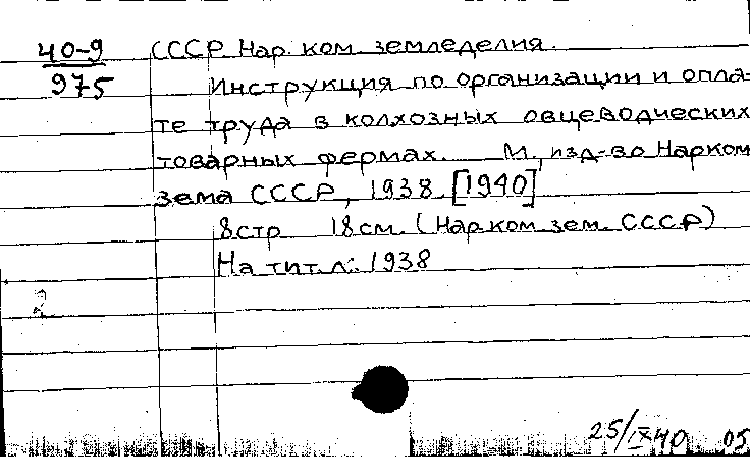 40-9 СССР Нар. ком. земледелия.
975 Инструкция по организации и опла-
те труда в колхозных овцеводческих
товарных фермах. М., изд-во Нарком
зема СССР, 1938. [1940]
8 стр 18 см. (Нар. ком. зем. СССР)
На тит. л.: 1938
2
25/IX 40 05